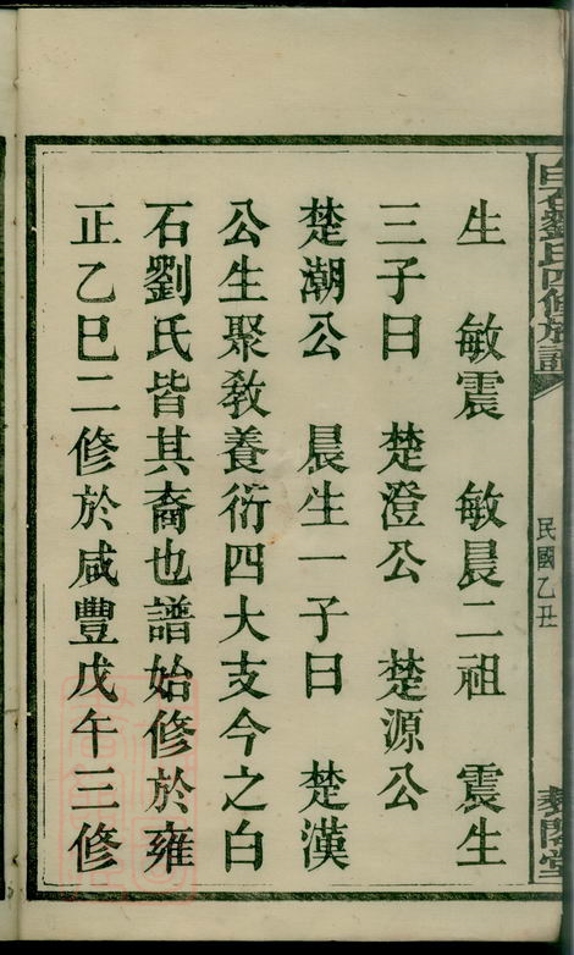 白石劉氏四修族譜
民國乙丑
生　敏震　敏晨二祖　震生
三子曰　楚澄公　楚源公
楚潮公　晨生一子曰　楚漢
公生聚教養衍四大支今之白
石劉氏皆其裔也譜始修於雍
正乙巳二修於咸豐戊午三修